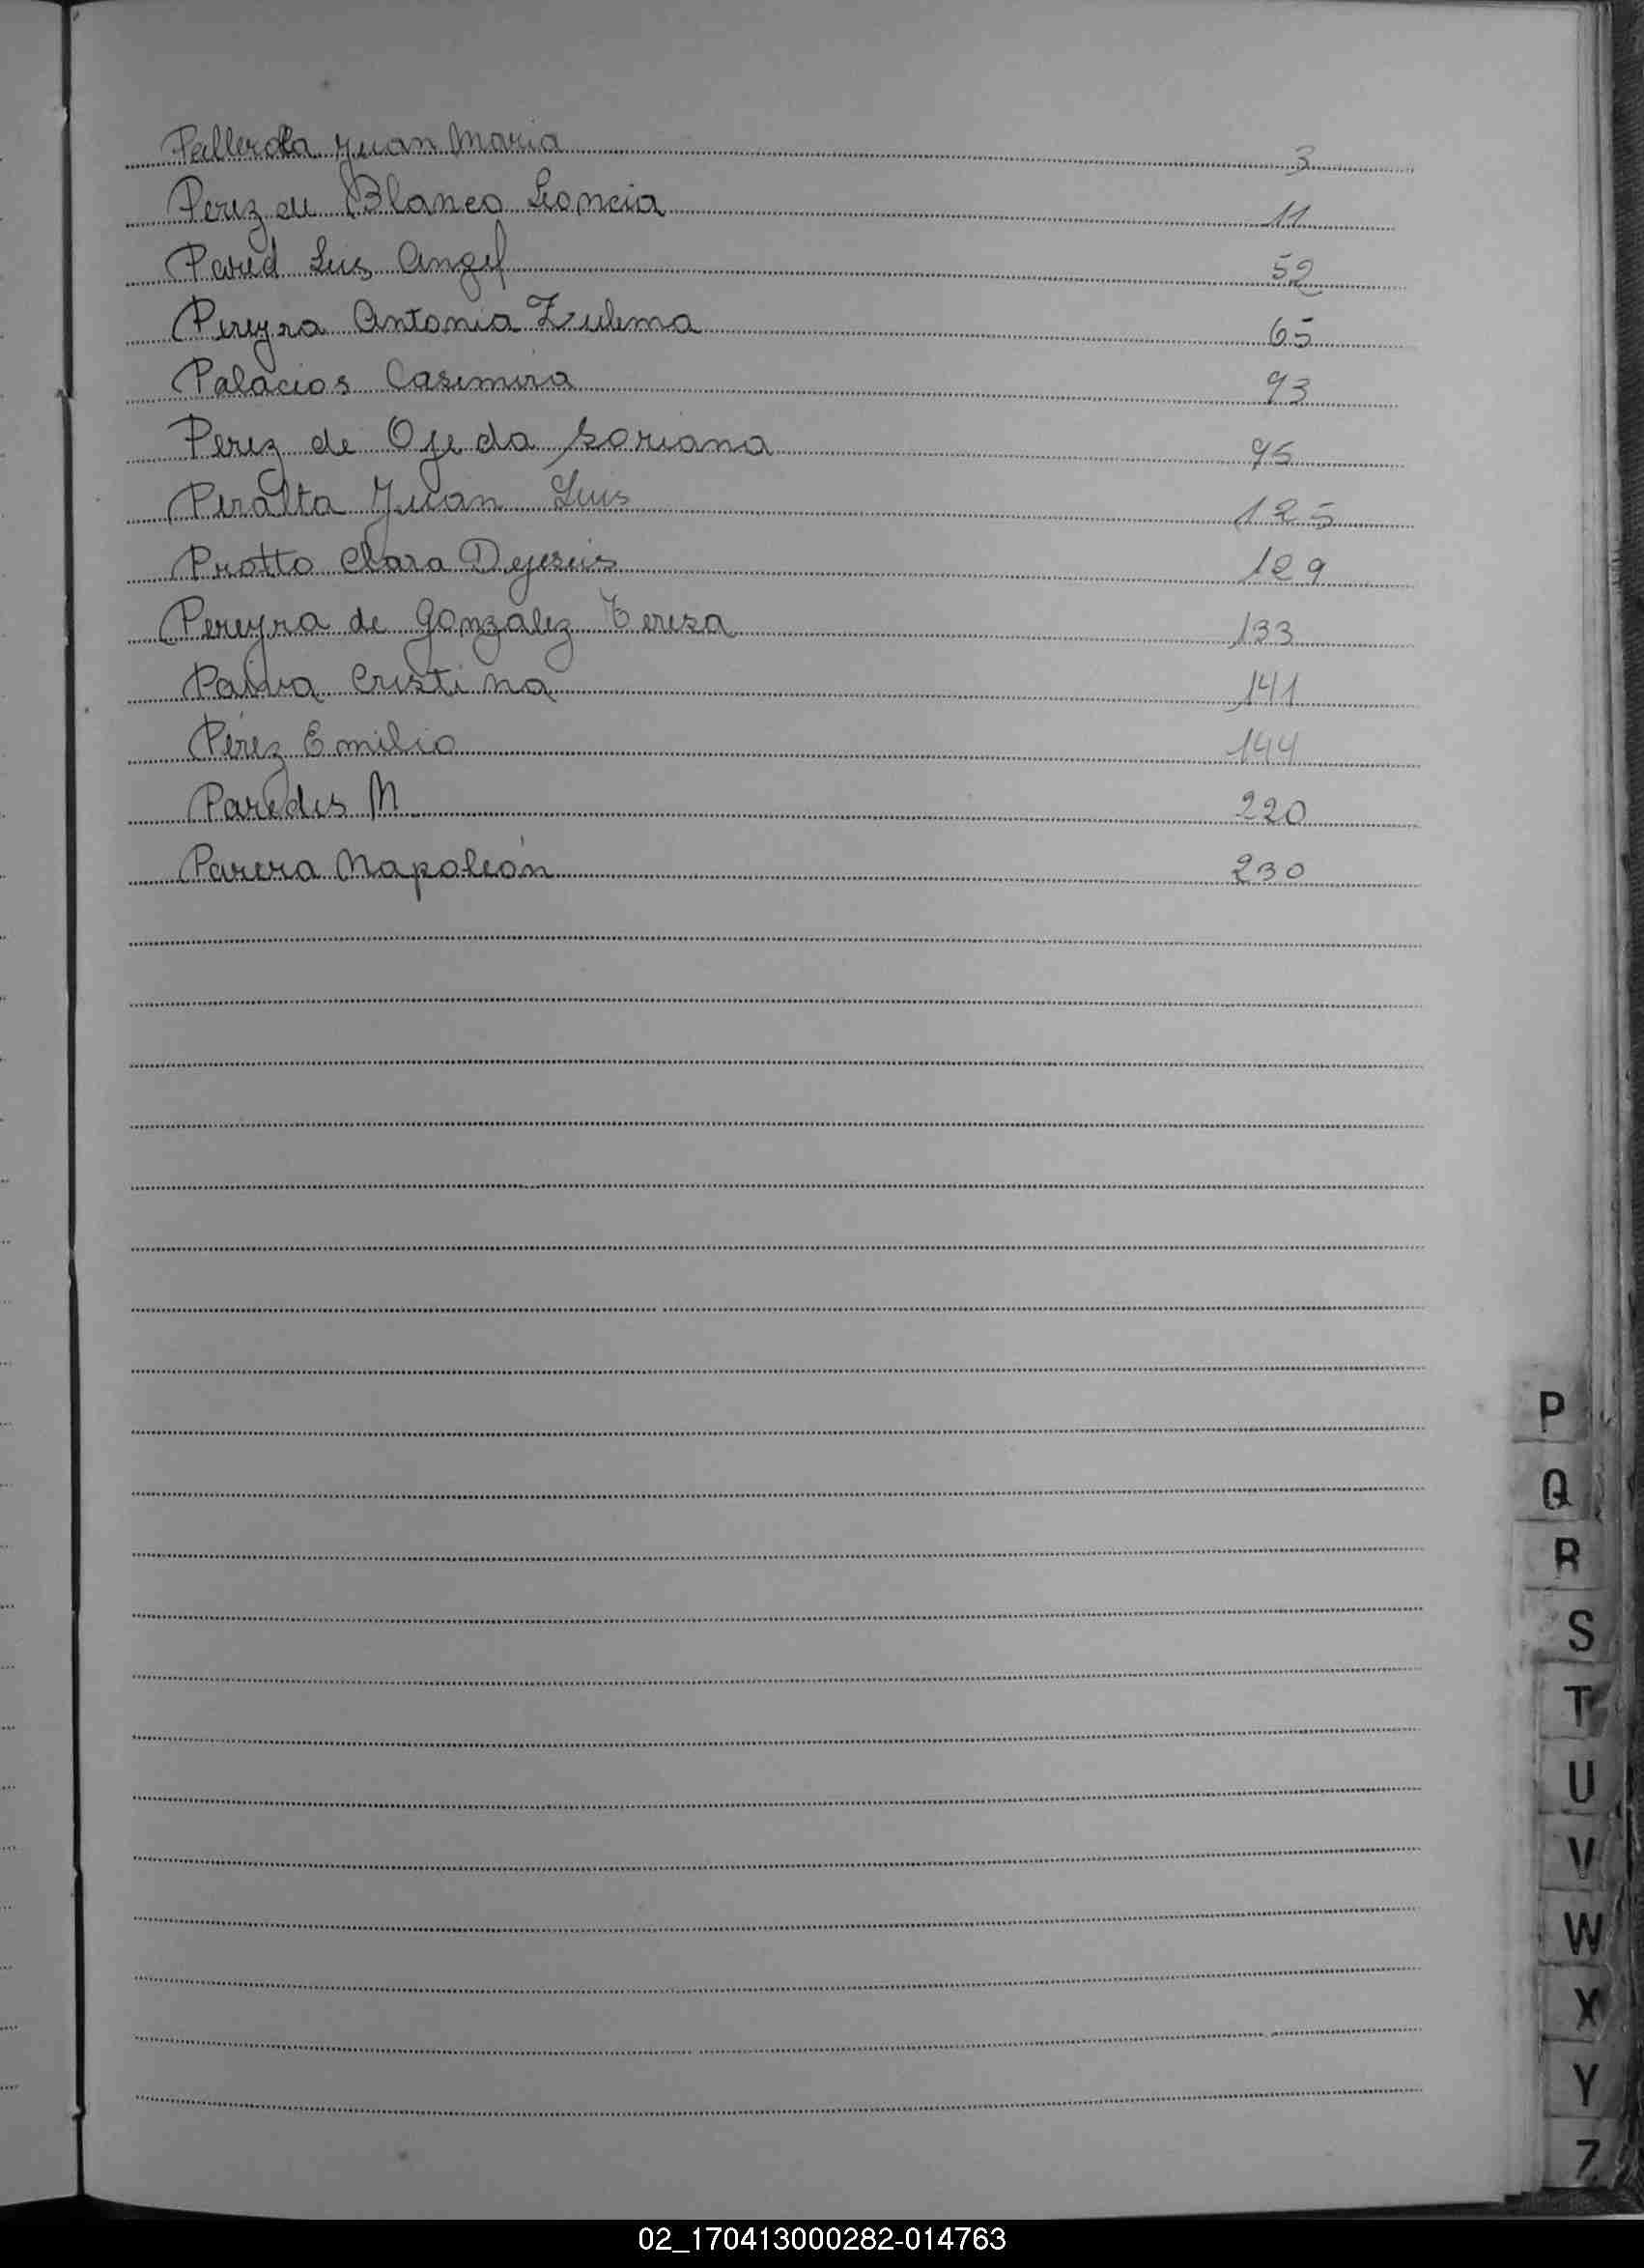 Juan Maria 3
Perez de Blanco Leoncia 11
Pared Luis Angel 52
Pereyra Antonia Zulema 65
Palacios Casimira 93
Perez de Ojeda Soriana 95
Peralta Juan Luis 125
Protto Clara Dejesús 129
Pereyra de González Teresa 133
Paiva Cristina 141
Pérez Emilio 144
Paredes M 220
Parera Napoleón 230
P
Q
R
S
T
U
V
W
X
Y
Z
02_170413000282-014763